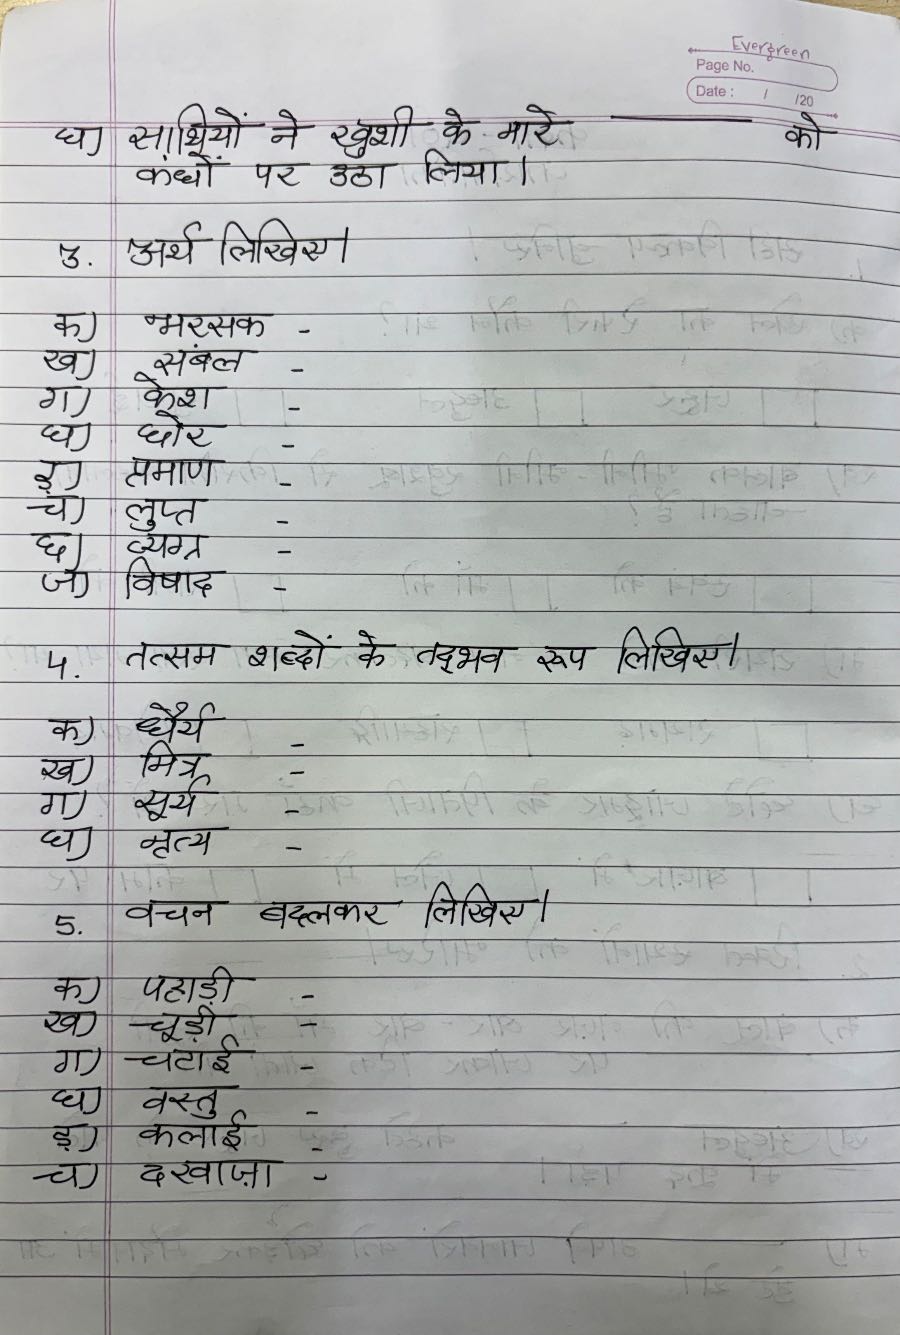 Evergreen
Page No.
Date : / /20
घ) साथियों ने खुशी के मारे ________ को
कंधों पर उठा लिया।
3. अर्थ लिखिए।
क) भरसक -
ख) संबल -
ग) केश -
घ) घोर -
ङ) प्रमाण -
च) लुप्त -
छ) व्यग्र -
ज) विषाद -
4. तत्सम शब्दों के तद्भव रूप लिखिए।
क) धैर्य -
ख) मित्र -
ग) सूर्य -
घ) नृत्य -
5. वचन बदलकर लिखिए।
क) पहाड़ी -
ख) चूड़ी -
ग) चटाई -
घ) वस्तु -
ङ) कलाई -
च) दरवाज़ा -